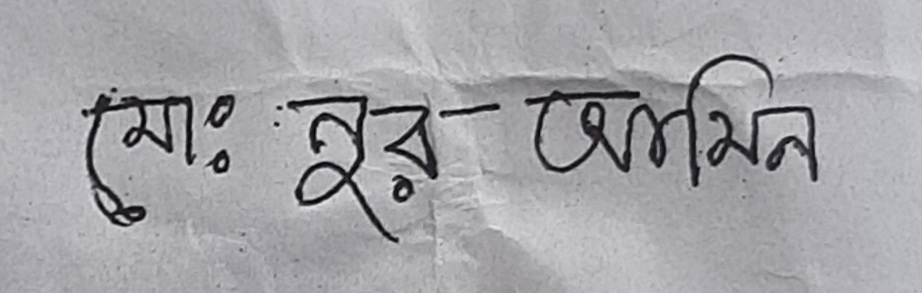 মোঃ নুর-আমিন